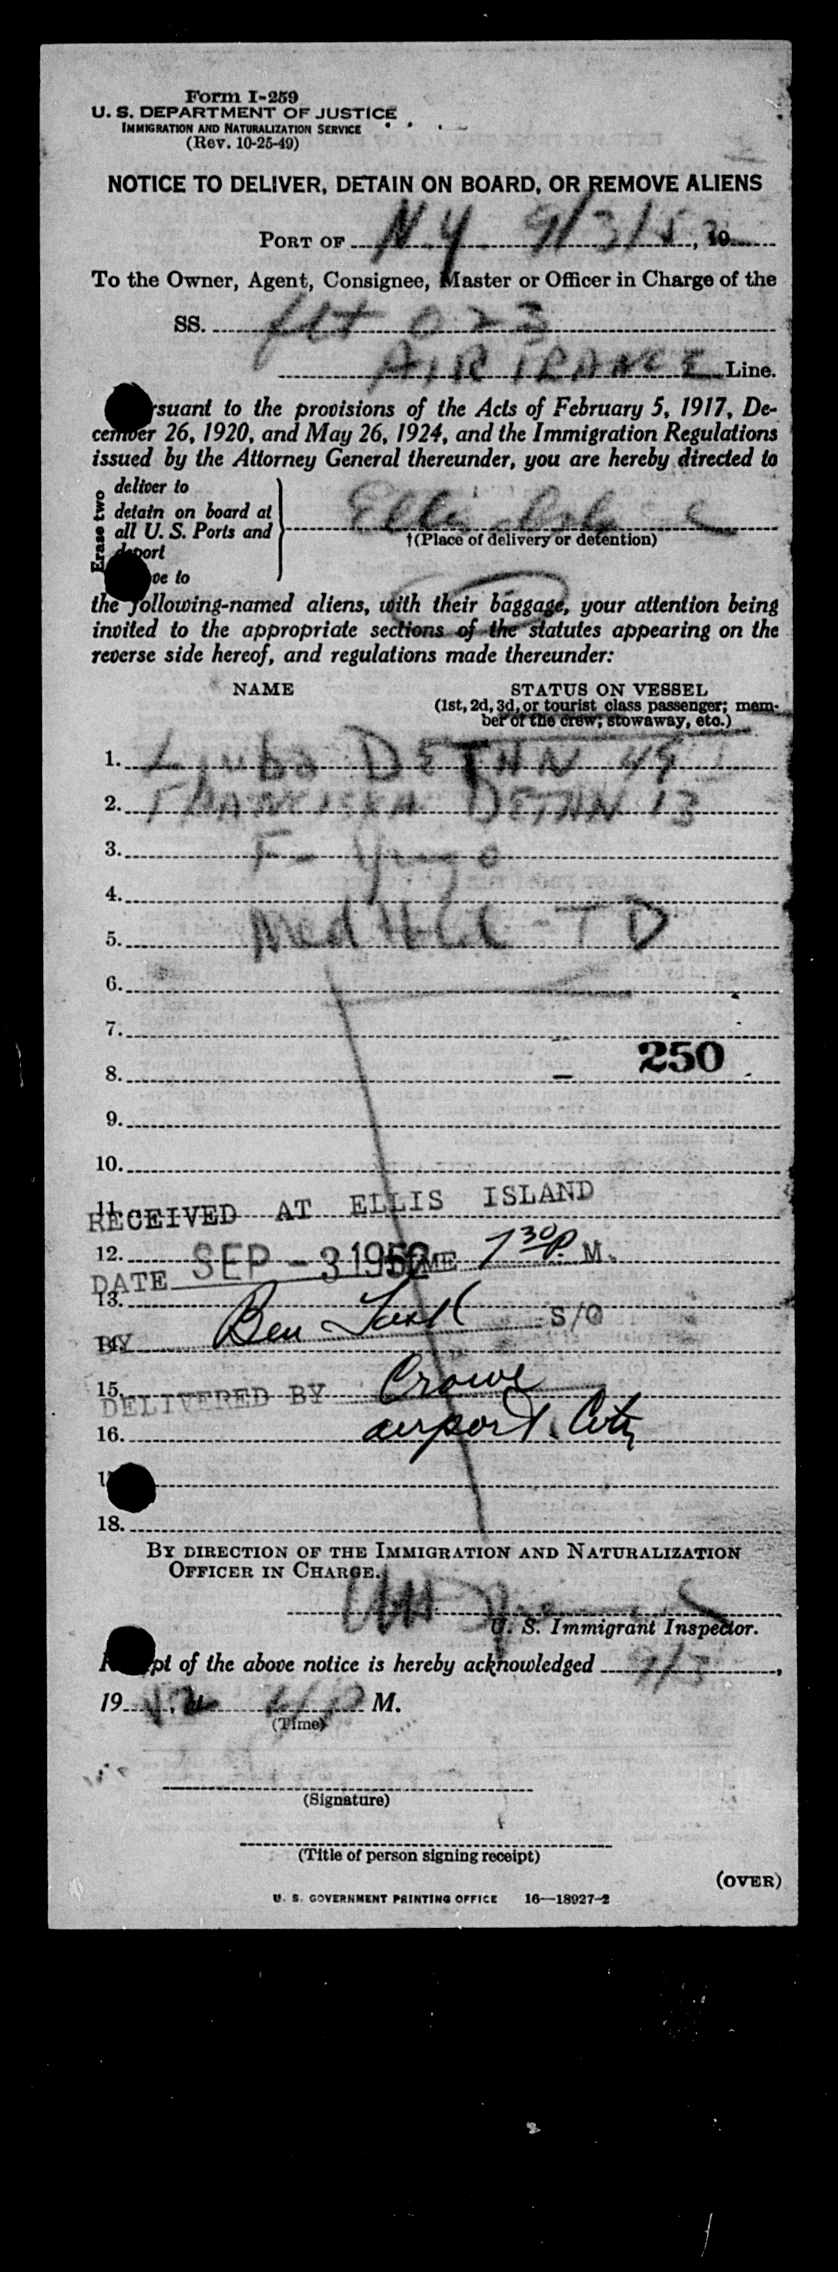 Form I-259
U. S. DEPARTMENT OF JUSTICE
IMMIGRATION AND NATURALIZATION SERVICE
(Rev. 10-25-49)
NOTICE TO DELIVER, DETAIN ON BOARD, OR REMOVE ALIENS
PORT OF N.Y. 9/3/52, 19
To the Owner, Agent, Consignee, Master or Officer in Charge of the
SS. flt 023
AIR FRANCE Line.
rsuant to the provisions of the Acts of February 5, 1917, De-
cember 26, 1920, and May 26, 1924, and the Immigration Regulations
issued by the Attorney General thereunder, you are hereby directed to
Erase two
deliver to
detain on board at
all U. S. Ports and
deport
ve to
Ellis Island
†(Place of delivery or detention)
the following-named aliens, with their baggage, your attention being
invited to the appropriate sections of the statutes appearing on the
reverse side hereof, and regulations made thereunder:
NAME STATUS ON VESSEL
(1st, 2d, 3d, or tourist class passenger; mem-
ber of the crew; stowaway, etc.)
1. Ljuba DETHN 49
2. DETHN 13
3. F- Yugo
4.
5. Med Hold - TD
6.
7.
250
8.
9.
10.
11.
RECEIVED AT ELLIS ISLAND
12.
DATE SEP - 3 1952 TIME 7 30 P. M.
13.
14.
BY Ben S/O
15.
DELIVERED BY Crowe
16. airport. City
18.
BY DIRECTION OF THE IMMIGRATION AND NATURALIZATION
OFFICER IN CHARGE.
U. S. Immigrant Inspector.
pt of the above notice is hereby acknowledged 9/3,
19 52, at 4 P M.
(Time)
(Signature)
(Title of person signing receipt)
(OVER)
U. S. GOVERNMENT PRINTING OFFICE 16—18927-2